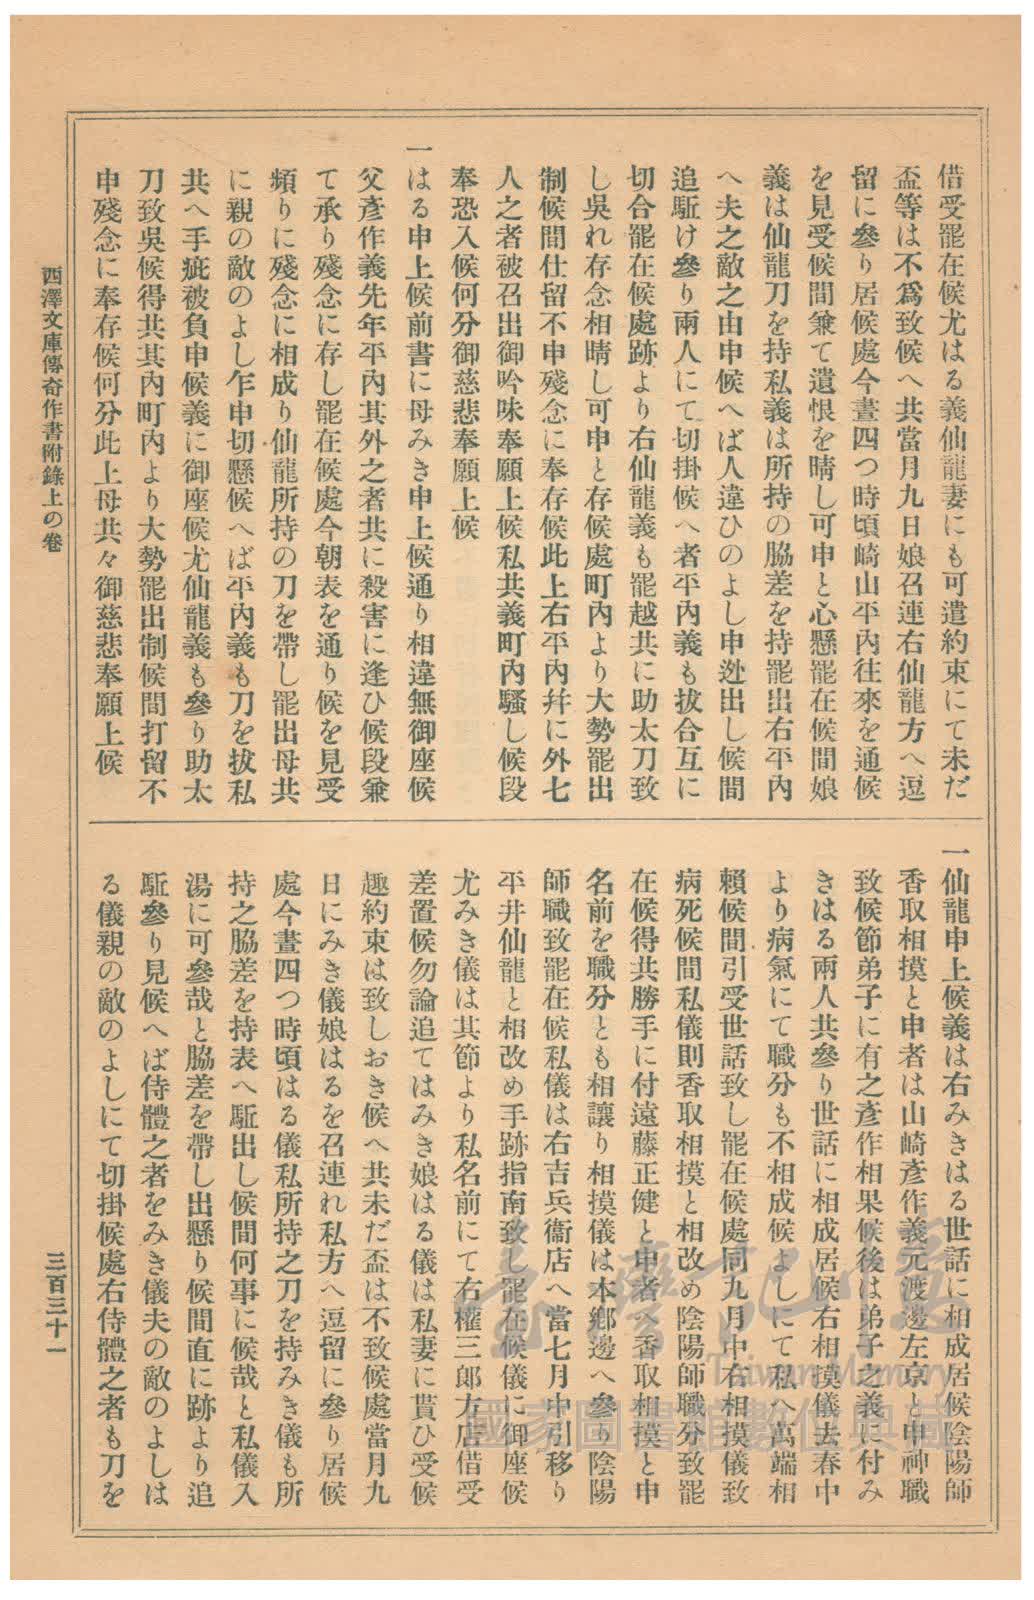 借受罷在候尤はる義仙龍妻にも可遣約束にて未だ
盃等は不爲致候へ共當月九日娘召連右仙龍方へ逗
留に參り居候處今晝四つ時頃崎山平內往來を通候
を見受候間兼て遺恨を晴し可申と心懸罷在候間娘
義は仙龍刀を持私義は所持の脇差を持罷出右平內
へ夫之敵之由申候へば人違ひのよし申迯出し候間
追駈け參り兩人にて切掛候へ者平內義も拔合互に
切合罷在候處跡より右仙龍義も罷越共に助太刀致
し吳れ存念相晴し可申と存候處町內より大勢罷出
制候間仕留不申殘念に奉存候此上右平內幷に外七
人之者被召出御吟味奉願上候私共義町內騷し候段
奉恐入候何分御慈悲奉願上候
一はる申上候前書に母みき申上候通り相違無御座候
父彥作義先年平內其外之者共に殺害に逢ひ候段兼
て承り殘念に存し罷在候處今朝表を通り候を見受
頻りに殘念に相成り仙龍所持の刀を帶し罷出母共
に親の敵のよし乍申切懸候へば平內義も刀を拔私
共へ手疵被負申候義に御座候尤仙龍義も參り助太
刀致吳候得共其內町內より大勢罷出制候間打留不
申殘念に奉存候何分此上母共々御慈悲奉願上候
一仙龍申上候義は右みきはる世話に相成居候陰陽師
香取相摸と申者は山崎彥作義元渡邊左京と申神職
致候節弟子に有之彥作相果候後は弟子之義に付み
きはる兩人共參り世話に相成居候右相摸儀去春中
より病氣にて職分も不相成候よしにて私へ萬端相
賴候間引受世話致し罷在候處同九月中右相摸儀致
病死候間私儀則香取相摸と相改め陰陽師職分致罷
在候得共勝手に付遠藤正健と申者へ香取相摸と申
名前を職分とも相讓り相摸儀は本鄕邊へ參り陰陽
師職致罷在候私儀は右吉兵衞店へ當七月中引移り
平井仙龍と相改め手跡指南致し罷在候儀に御座候
尤みき儀は其節より私名前にて右權三郎方店借受
差置候勿論追てはみき娘はる儀は私妻に貰ひ受候
趣約束は致しおき候へ共未だ盃は不致候處當月九
日にみき儀娘はるを召連れ私方へ逗留に參り居候
處今晝四つ時頃はる儀私所持之刀を持みき儀も所
持之脇差を持表へ駈出し候間何事に候哉と私儀入
湯に可參哉と脇差を帶し出懸り候間直に跡より追
駈參り見候へば侍體之者をみき儀夫の敵のよしは
る儀親の敵のよしにて切掛候處右侍體之者も刀を
西澤文庫傳奇作書附錄上の卷
三百三十一
臺灣記憶
Taiwan Memory
國家圖書館數位典藏